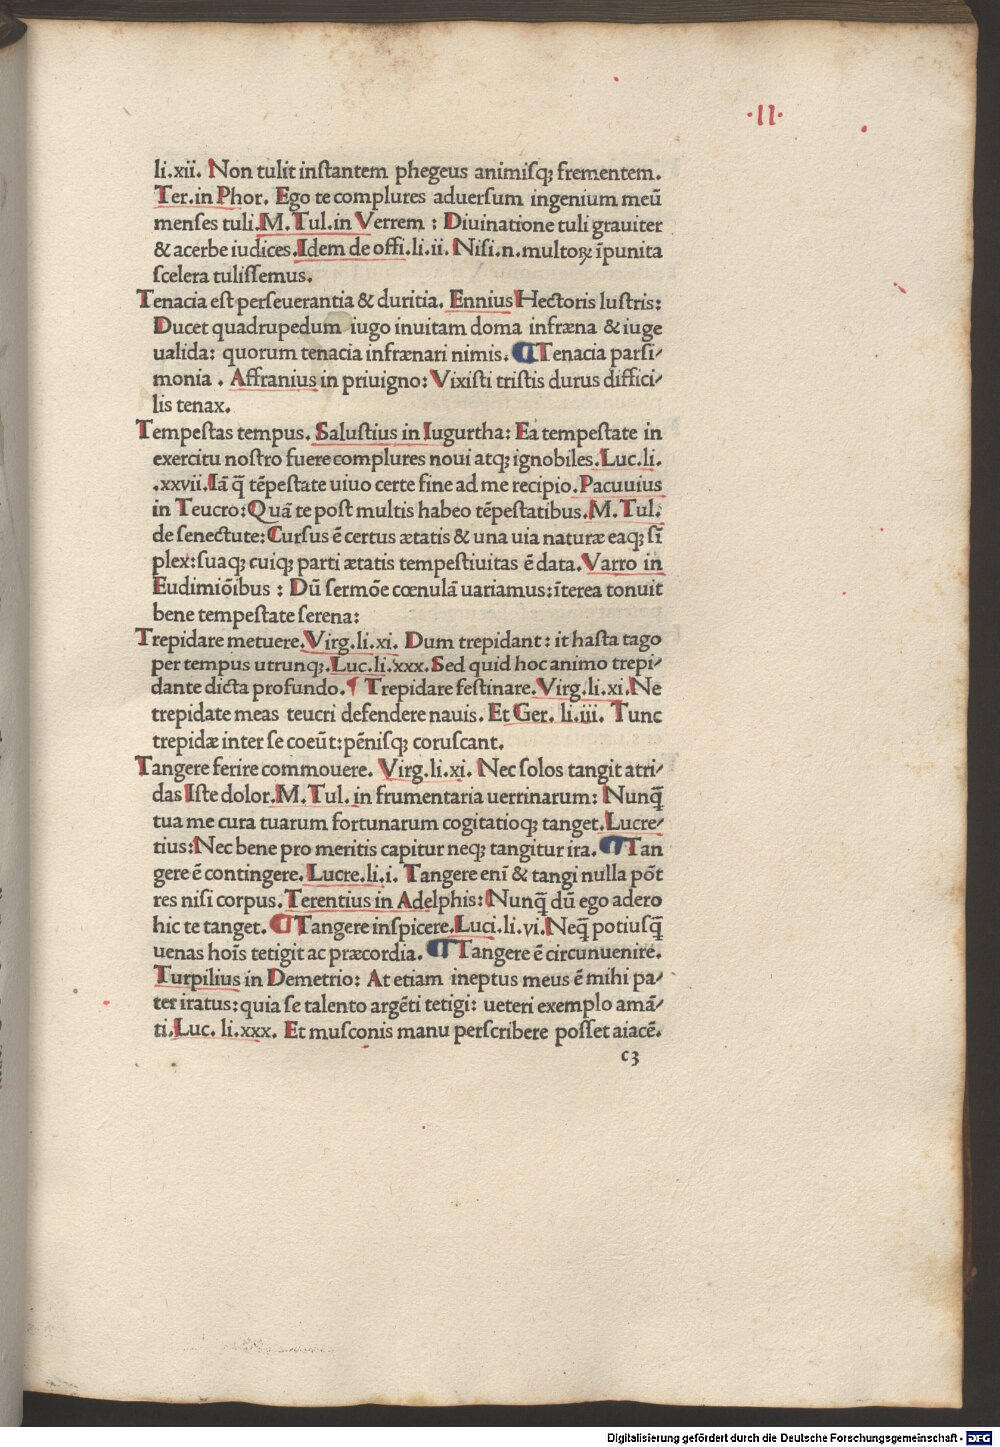 ·11·
li.xii. Non tulit inſtantem phegeus animiſqꝫ frementem.
Ter.in Phor. Ego te complures aduerſum ingenium meū
menſes tuli.M.Tul.in Verrem : Diuinatione tuli grauiter
& acerbe iudices.Idem de offi.li.ii. Niſi.n.multoꝝ īpunita
ſcelera tuliſſemus.
Tenacia eſt perſeuerantia & duritia. Ennius Hectoris luſtris:
Ducet quadrupedum iugo inuitam doma infræna & iuge
ualida: quorum tenacia infrænari nimis. ¶Tenacia parſi⸗
monia . Affranius in priuigno: Vixiſti triſtis durus diffici⸗
lis tenax.
Tempeſtas tempus. Saluſtius in Iugurtha: Ea tempeſtate in
exercitu noſtro fuere complures noui atqꝫ ignobiles.Luc.li.
.xxvii.Iā q̄ tēpeſtate uiuo certe fine ad me recipio.Pacuuius
in Teucro:Quā te poſt multis habeo tēpeſtatibus.M.Tul.
de ſenectute:Curſus ē certus ætatis & una uia naturæ eaqꝫ ſī
plex:ſuaqꝫ cuiqꝫ parti ætatis tempeſtiuitas ē data.Varro in
Eudimiōibus : Dū ſermōe cœnulā uariamus:īterea tonuit
bene tempeſtate ſerena:
Trepidare metuere.Virg.li.xi. Dum trepidant: it haſta tago
per tempus utrunqꝫ.Luc.li.xxx.Sed quid hoc animo trepi⸗
dante dicta profundo.¶ Trepidare feſtinare.Virg.li.xi.Ne
trepidate meas teucri defendere nauis. Et Ger. li.iii. Tunc
trepidæ inter ſe coeūt:pēniſqꝫ coruſcant.
Tangere ferire commouere. Virg.li.xi. Nec ſolos tangit atri⸗
das Iſte dolor.M.Tul. in frumentaria uerrinarum: Nunq̄
tua me cura tuarum fortunarum cogitatioqꝫ tanget.Lucre⸗
tius:Nec bene pro meritis capitur neqꝫ tangitur ira. ¶Tan
gere ē contingere. Lucre.li.i. Tangere enī & tangi nulla pōt
res niſi corpus.Terentius in Adelphis:Nunq̄ dū ego adero
hic te tanget. ¶Tangere inſpicere.Luci.li.vi.Neq̄ potiuſq̄
uenas hoīs tetigit ac præcordia. ¶Tangere ē circunuenire.
Turpilius in Demetrio: At etiam ineptus meus ē mihi pa⸗
ter iratus:quia ſe talento argēti tetigi: ueteri exemplo amā⸗
ti.Luc. li.xxx. Et muſconis manu perſcribere poſſet aiacē.
c3
Digitalisierung gefördert durch die Deutsche Forschungsgemeinschaft - DFG